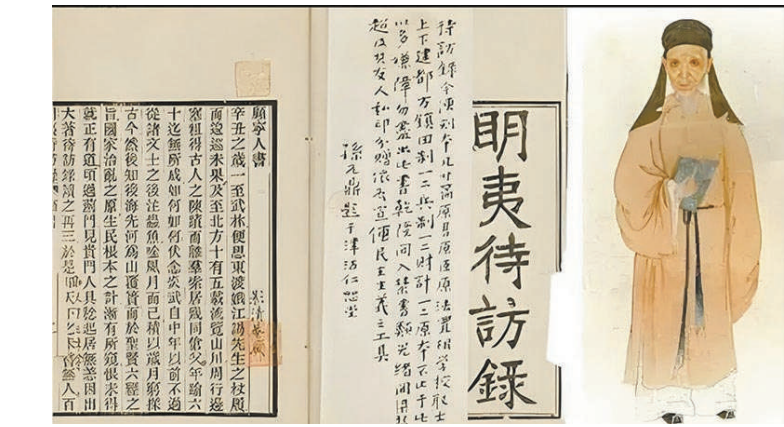 明夷待訪錄
待訪錄今便刻本凡廿篇原君原臣原法置相學校取士
上下建都方鎮田制一二兵制一二財計一二原本不止于此
以多嫌諱勿盡出此書乾隆間入禁書類光緒間
超及其友人私印分贈宣傳民主主義之工具
孫元鼎題于津沽仁恕堂
顧寧人書
辛丑之歲一至武林便思東渡娥江謁先生之杖屨
而逡巡未果及至北方十有五載流覽山川周行邊
塞粗得古人之陳蹟而離羣索居幾同傖父年逾六
十迄無所成如何如何伏念炎武自中年以前不過
從諸文士之後注蟲魚吟風月而已積以歲月窮探
古今然後知後海先河爲山覆簣而於聖賢六經之
旨國家治亂之原生民根本之計漸有所窺恨未得
就正有道頃過薊門見貴門人具稔起居無恙因出
大著待訪錄讀之再三於是知天下之未嘗無人百